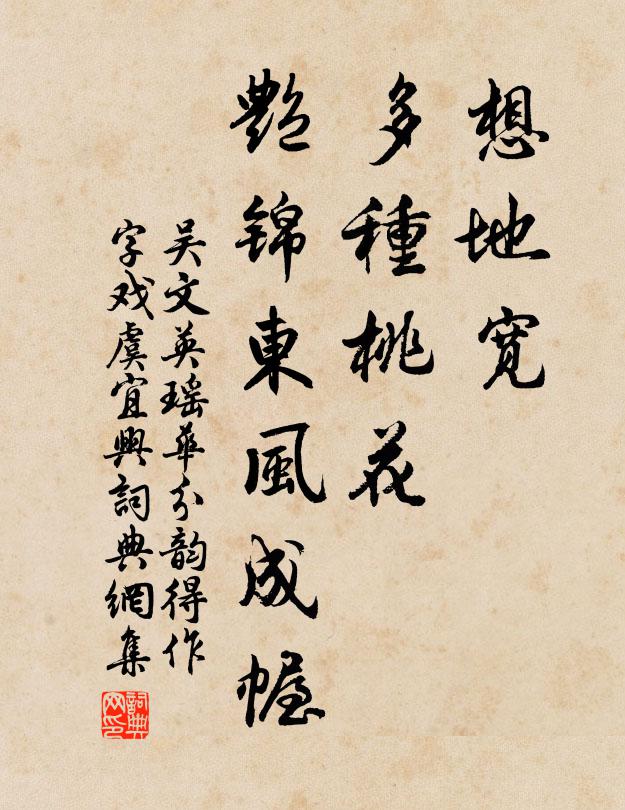 想地寬
多種桃花
艷錦東風成幄
吴文英瑶華分韵得作
字戏虞宜興詞典網集
詞典
网印